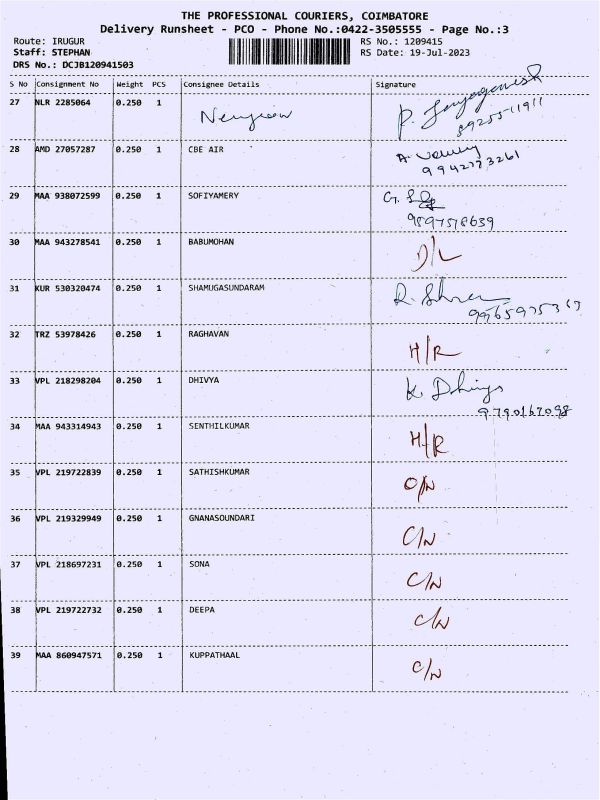 THE PROFESSIONAL COURIERS, COIMBATORE
Delivery Runsheet - PCO - Phone No.:0422-3505555 - Page No.:3
Route: IRUGUR RS No.: 1209415
Staff: STEPHAN RS Date: 19-Jul-2023
DRS No.: DCJB120941503
S No Consignment No Weight PCS Consignee Details Signature
27 NLR 2285064 0.250 1
8925511911
28 AMD 27057287 0.250 1 CBE AIR A.
9942773261
29 MAA 938072599 0.250 1 SOFIYAMERY G.
9897578639
30 MAA 943278541 0.250 1 BABUMOHAN D/L
31 KUR 530320474 0.250 1 SHAMUGASUNDARAM R.
9965975363
32 TRZ 53978426 0.250 1 RAGHAVAN H/R
33 VPL 218298204 0.250 1 DHIVYA K. Dhivya
9790167098
34 MAA 943314943 0.250 1 SENTHILKUMAR H/R
35 VPL 219722839 0.250 1 SATHISHKUMAR O/N
36 VPL 219329949 0.250 1 GNANASOUNDARI C/N
37 VPL 218697231 0.250 1 SONA C/N
38 VPL 219722732 0.250 1 DEEPA C/N
39 MAA 860947571 0.250 1 KUPPATHAAL C/N